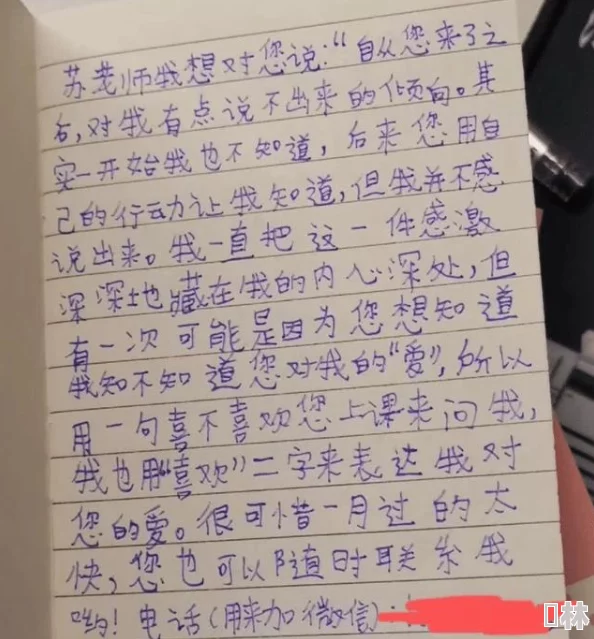 苏老师我想对您说:“自从您来了之
后,对我有点说不出来的倾向。其
实一开始我也不知道,后来您用自
己的行动让我知道,但我并不感
说出来。我一直把这一件感激
深深地藏在我的内心深处,但
有一次可能是因为您想知道
我知不知道您对我的“爱”,所以
用一句喜不喜欢您上课来问我,
我也用“喜欢”二字来表达我对
您的爱。很可惜一月过的太
快,您也可以随时联系我
哟!电话(用来加微信):
林